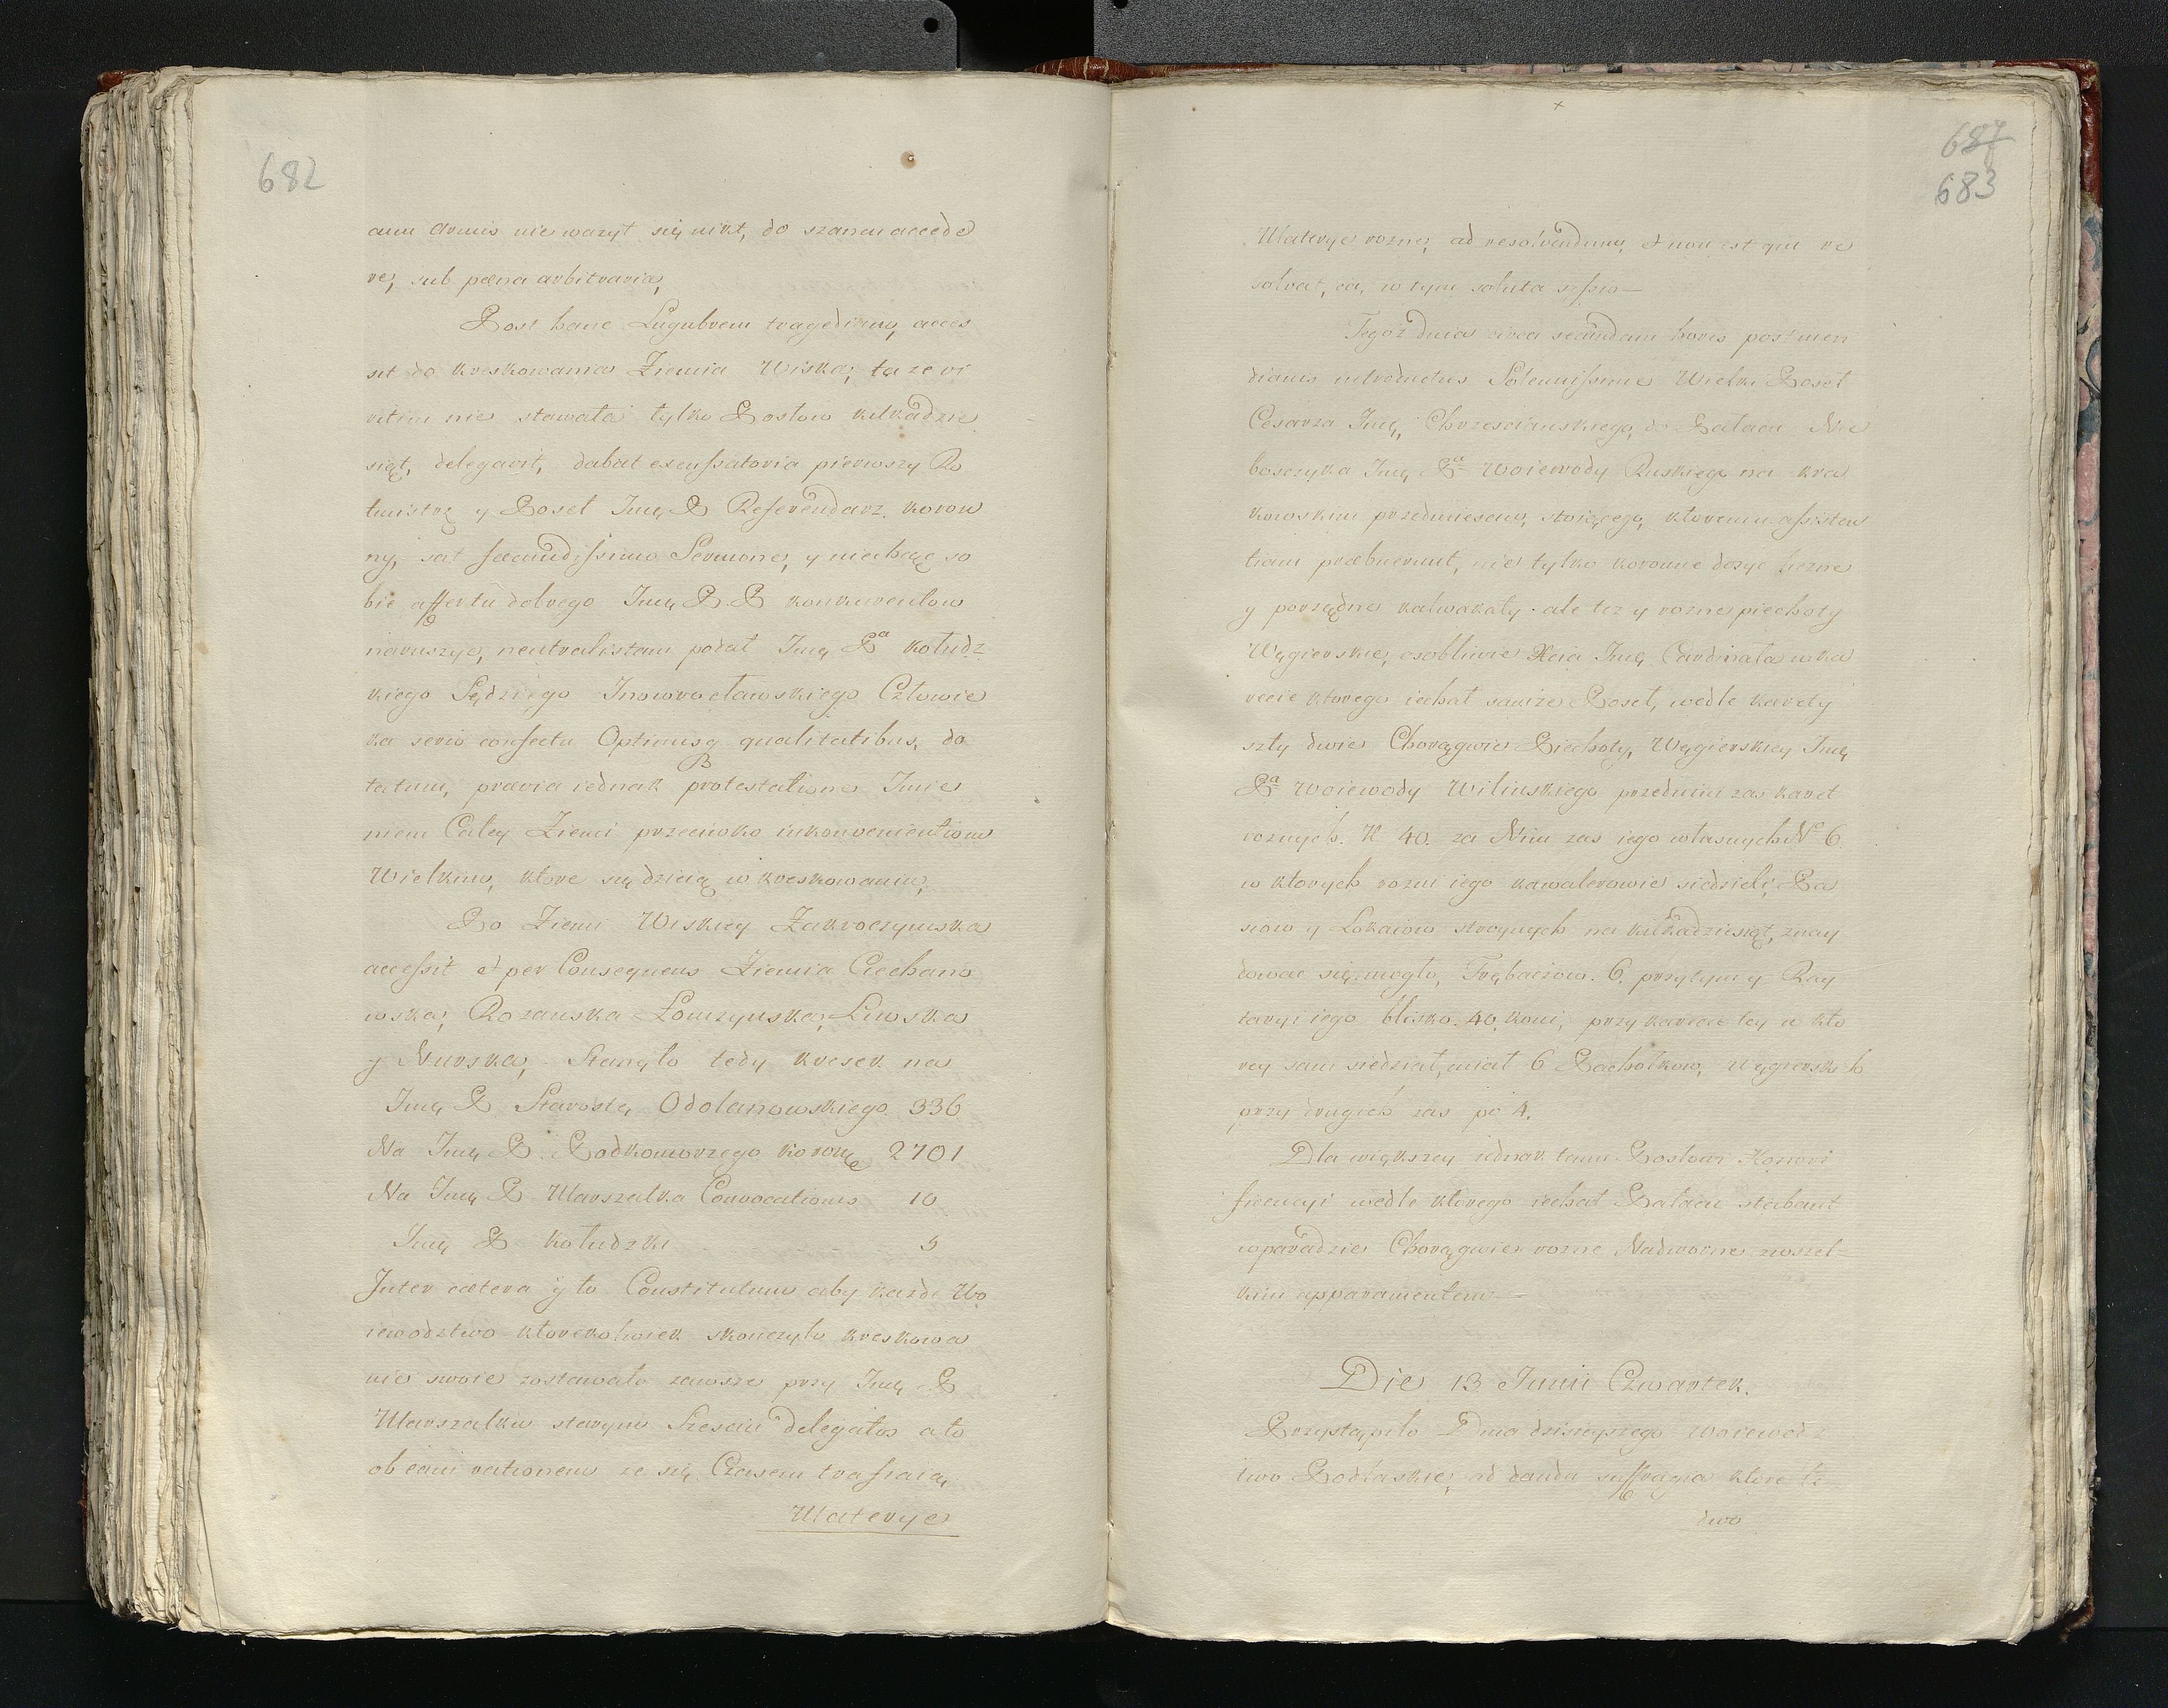 682
cum armis nie ważył się nikt, do szańcu accede
re, sub pœna arbitraria,
Post hanc Lugubrem tragediam, acces
sit do kreskowania Ziemia Wiska, ta ze vi
ritim nie stawała tylko Posłow kilkadzie
siąt, delegavit, dabat excussatoria pierwszy Ro
tmistrz y Poseł Jmę P Referendarz koron
ny, sat facundissimo Sermone, y niechcąc so
bie affectu dobrego Jmę P. P konkurentow
naruszyc, neutralistam podał Jmę Pa kołudz
kiego Sędziego Inowrocławskiego Człowie
ka serio consectu Optimisq qualitatibus, do
tatum, prævia iednak protestatione Imie
niem Całey Ziemi przeciwko inkonvenientiom
Wielkim, ktore się dzieią w kreskowaniu,
Po Ziemi Wiskiey Zakroczymska
accessit et per Consequens Ziemia Ciechano
wska, Rozanska Łomzynska, Liwska
y Nurska, Stanęło tedy kresek na
Jmę P Starostę Odolanowskiego 336
Na Jmę P. Podkomorzego koronę 2701
Na Jmę P Marszałka Convocationis 10
Jmę P kołudzki 5
Inter cætera y to Constitutum aby każde Wo
iewodztwo ktorekolwiek skonczyło kreskowa
nie swoie zostawało zawsze przy Jmę P
Marszałku starym Szesciu delegatos a to
ob eam rationem ze się Czasem trafiaią
Materye
687
683
Materye rozne, ad resolvendum, et non est qui re
solvat, ea, w tym soluta sessio
Tegoz dnia circa secundam horis postmeri
dianis introductus Solennissime Wielki Poseł
Cesarza Jmę, Chrzescianskiego, do Pałacu Nie
boszczyka Jmę Pa Woiewody Ruskiego na kra
kowskim przedmiesciu, stoiącego, ktoremu assisten
tiam præbuerunt, nie tylko koronne dosyc liczne
y porządne kalwakaty. ale tez y rozne piechoty
Węgierskie, osobliwie Xcia Jmę Cardinała w ka
recie ktorego iechał samże Poseł, wedle karety
szły dwie Chorągwie Piechoty, Węgierskiey Jmę
Pa Woiewody Wilinskiego przednim zas karet
roznych. N 40. za Nim zas iego własnych No 6.
w ktorych rozni iego kawalerowie siedzieli, Pa
ziow y Lokaiow stroynych na kilkadziesiąt, znay
dowac się mogło, Trębaczow. 6. przytym y Ray
taryi iego blisko. 40. koni, przy karecie tey w kto
rey sam siedział, miał 6 Pachołkow, Węgierskich
przy drugich zas po 4.
Dla większey iednak temu Posłowi Honori
ficencyi wedle ktorego iechał Pałacu stabant
w paradzie Chorągwie rozne Nadworne zwszel
kim apparamentem
Die 13 Junii Czwartek.
Przystąpiło Dnia dzisieyszego Woiewodz
two Podlaskie, ad danda suffragia ktore le
dwo